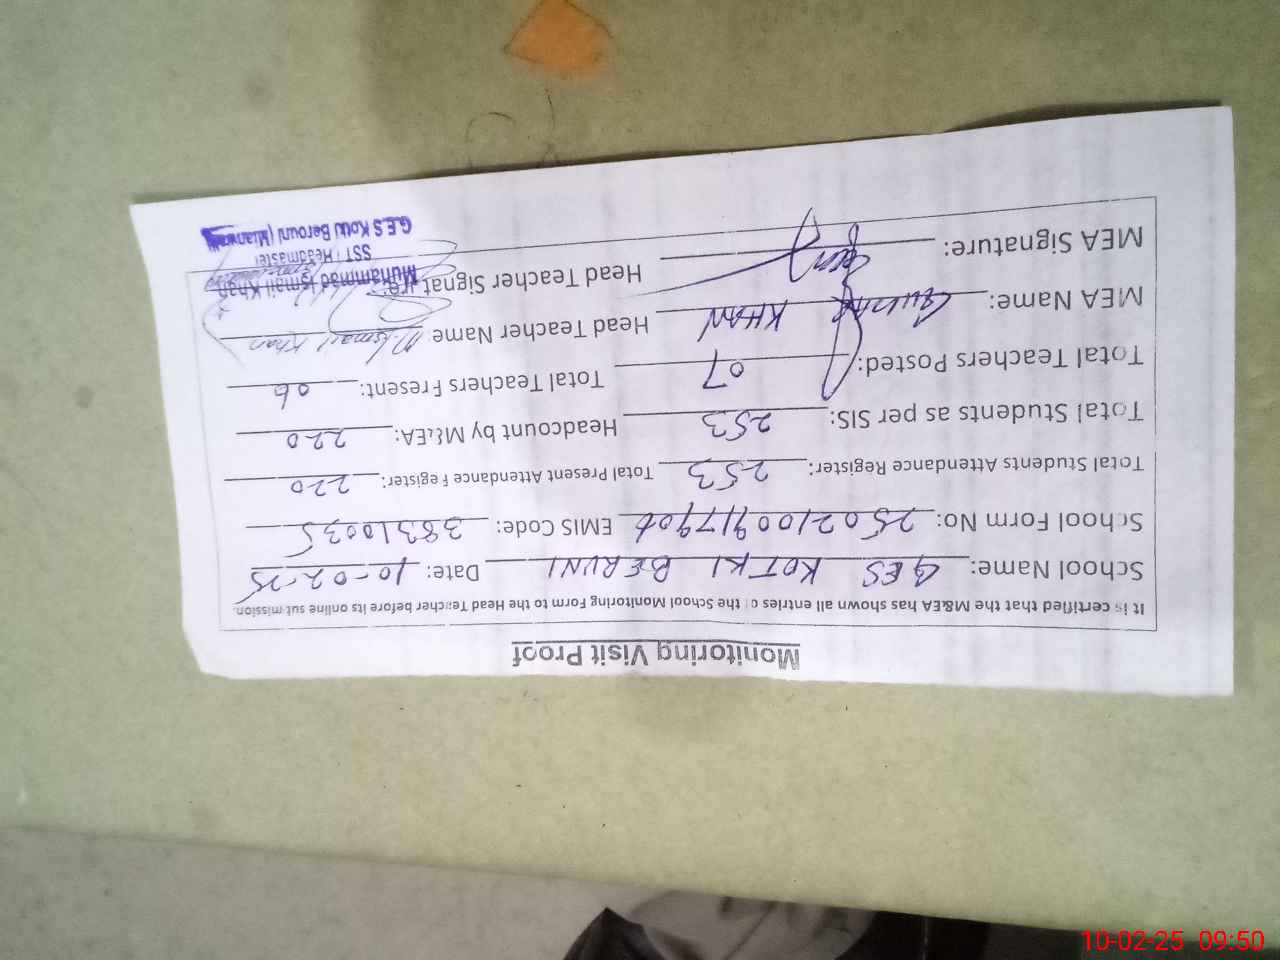 Monitoring Visit Proof
It is certified that the M&EA has shown all entries of the School Monitoring Form to the Head Teacher before its online submission.
School Name: GES KOTKI BERUNI Date: 10-02-25
School Form No: 2502100917906 EMIS Code: 38310035
Total Students Attendance Register: 253 Total Present Attendance Register: 220
Total Students as per SIS: 253 Headcount by M&EA: 220
Total Teachers Posted: 07 Total Teachers Present: 06
MEA Name: KHAN Head Teacher Name M. Ismail Khan
MEA Signature: Head Teacher Signature
Muhammad Ismail Khan
SST / Headmaster
G.E.S Kotki Berouni (Mianwali)
10-02-25 09:50